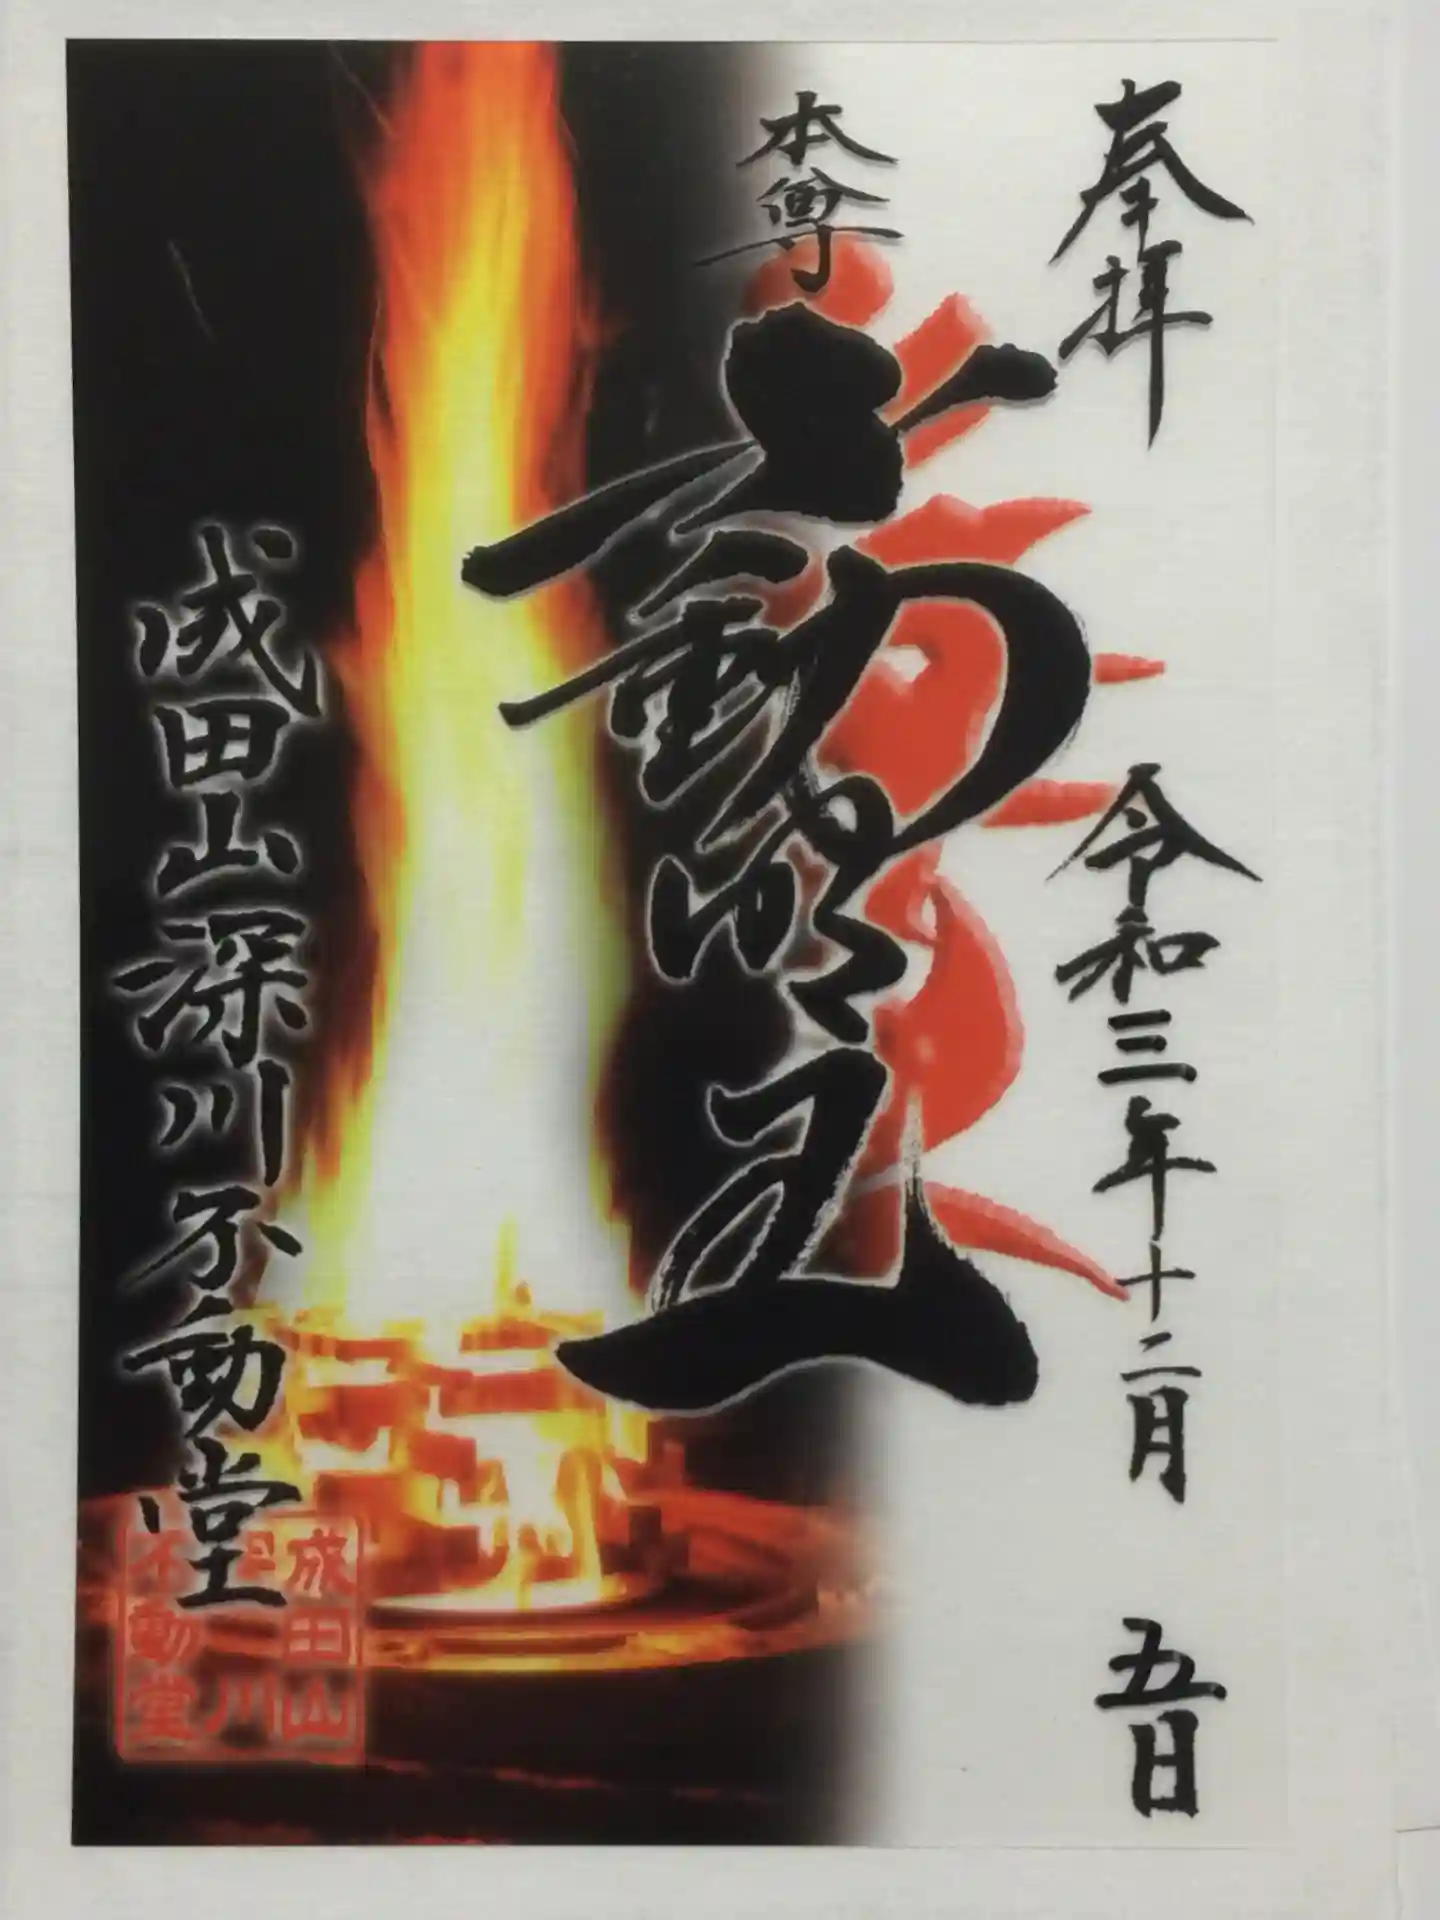 奉拝
令和三年十二月 五日
本尊
不動明王
成田山深川不動堂
成田山
川
不動堂